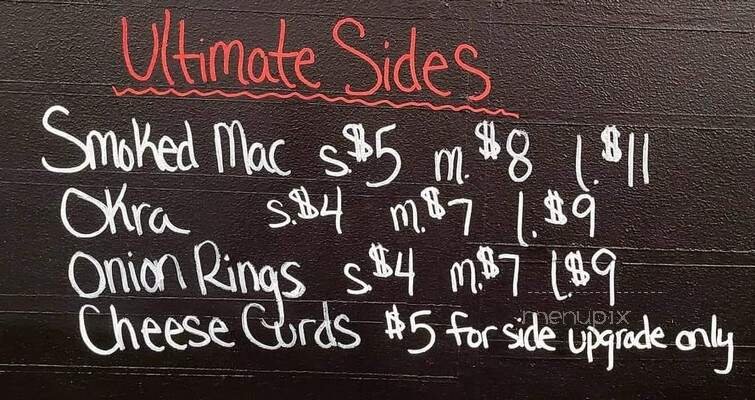 Ultimate Sides
Smoked Mac s.$5 m.$8 l.$11
Okra s.$4 m.$7 l.$9
Onion Rings s.$4 m.$7 l.$9
Cheese Curds $5 for side upgrade only
menupix